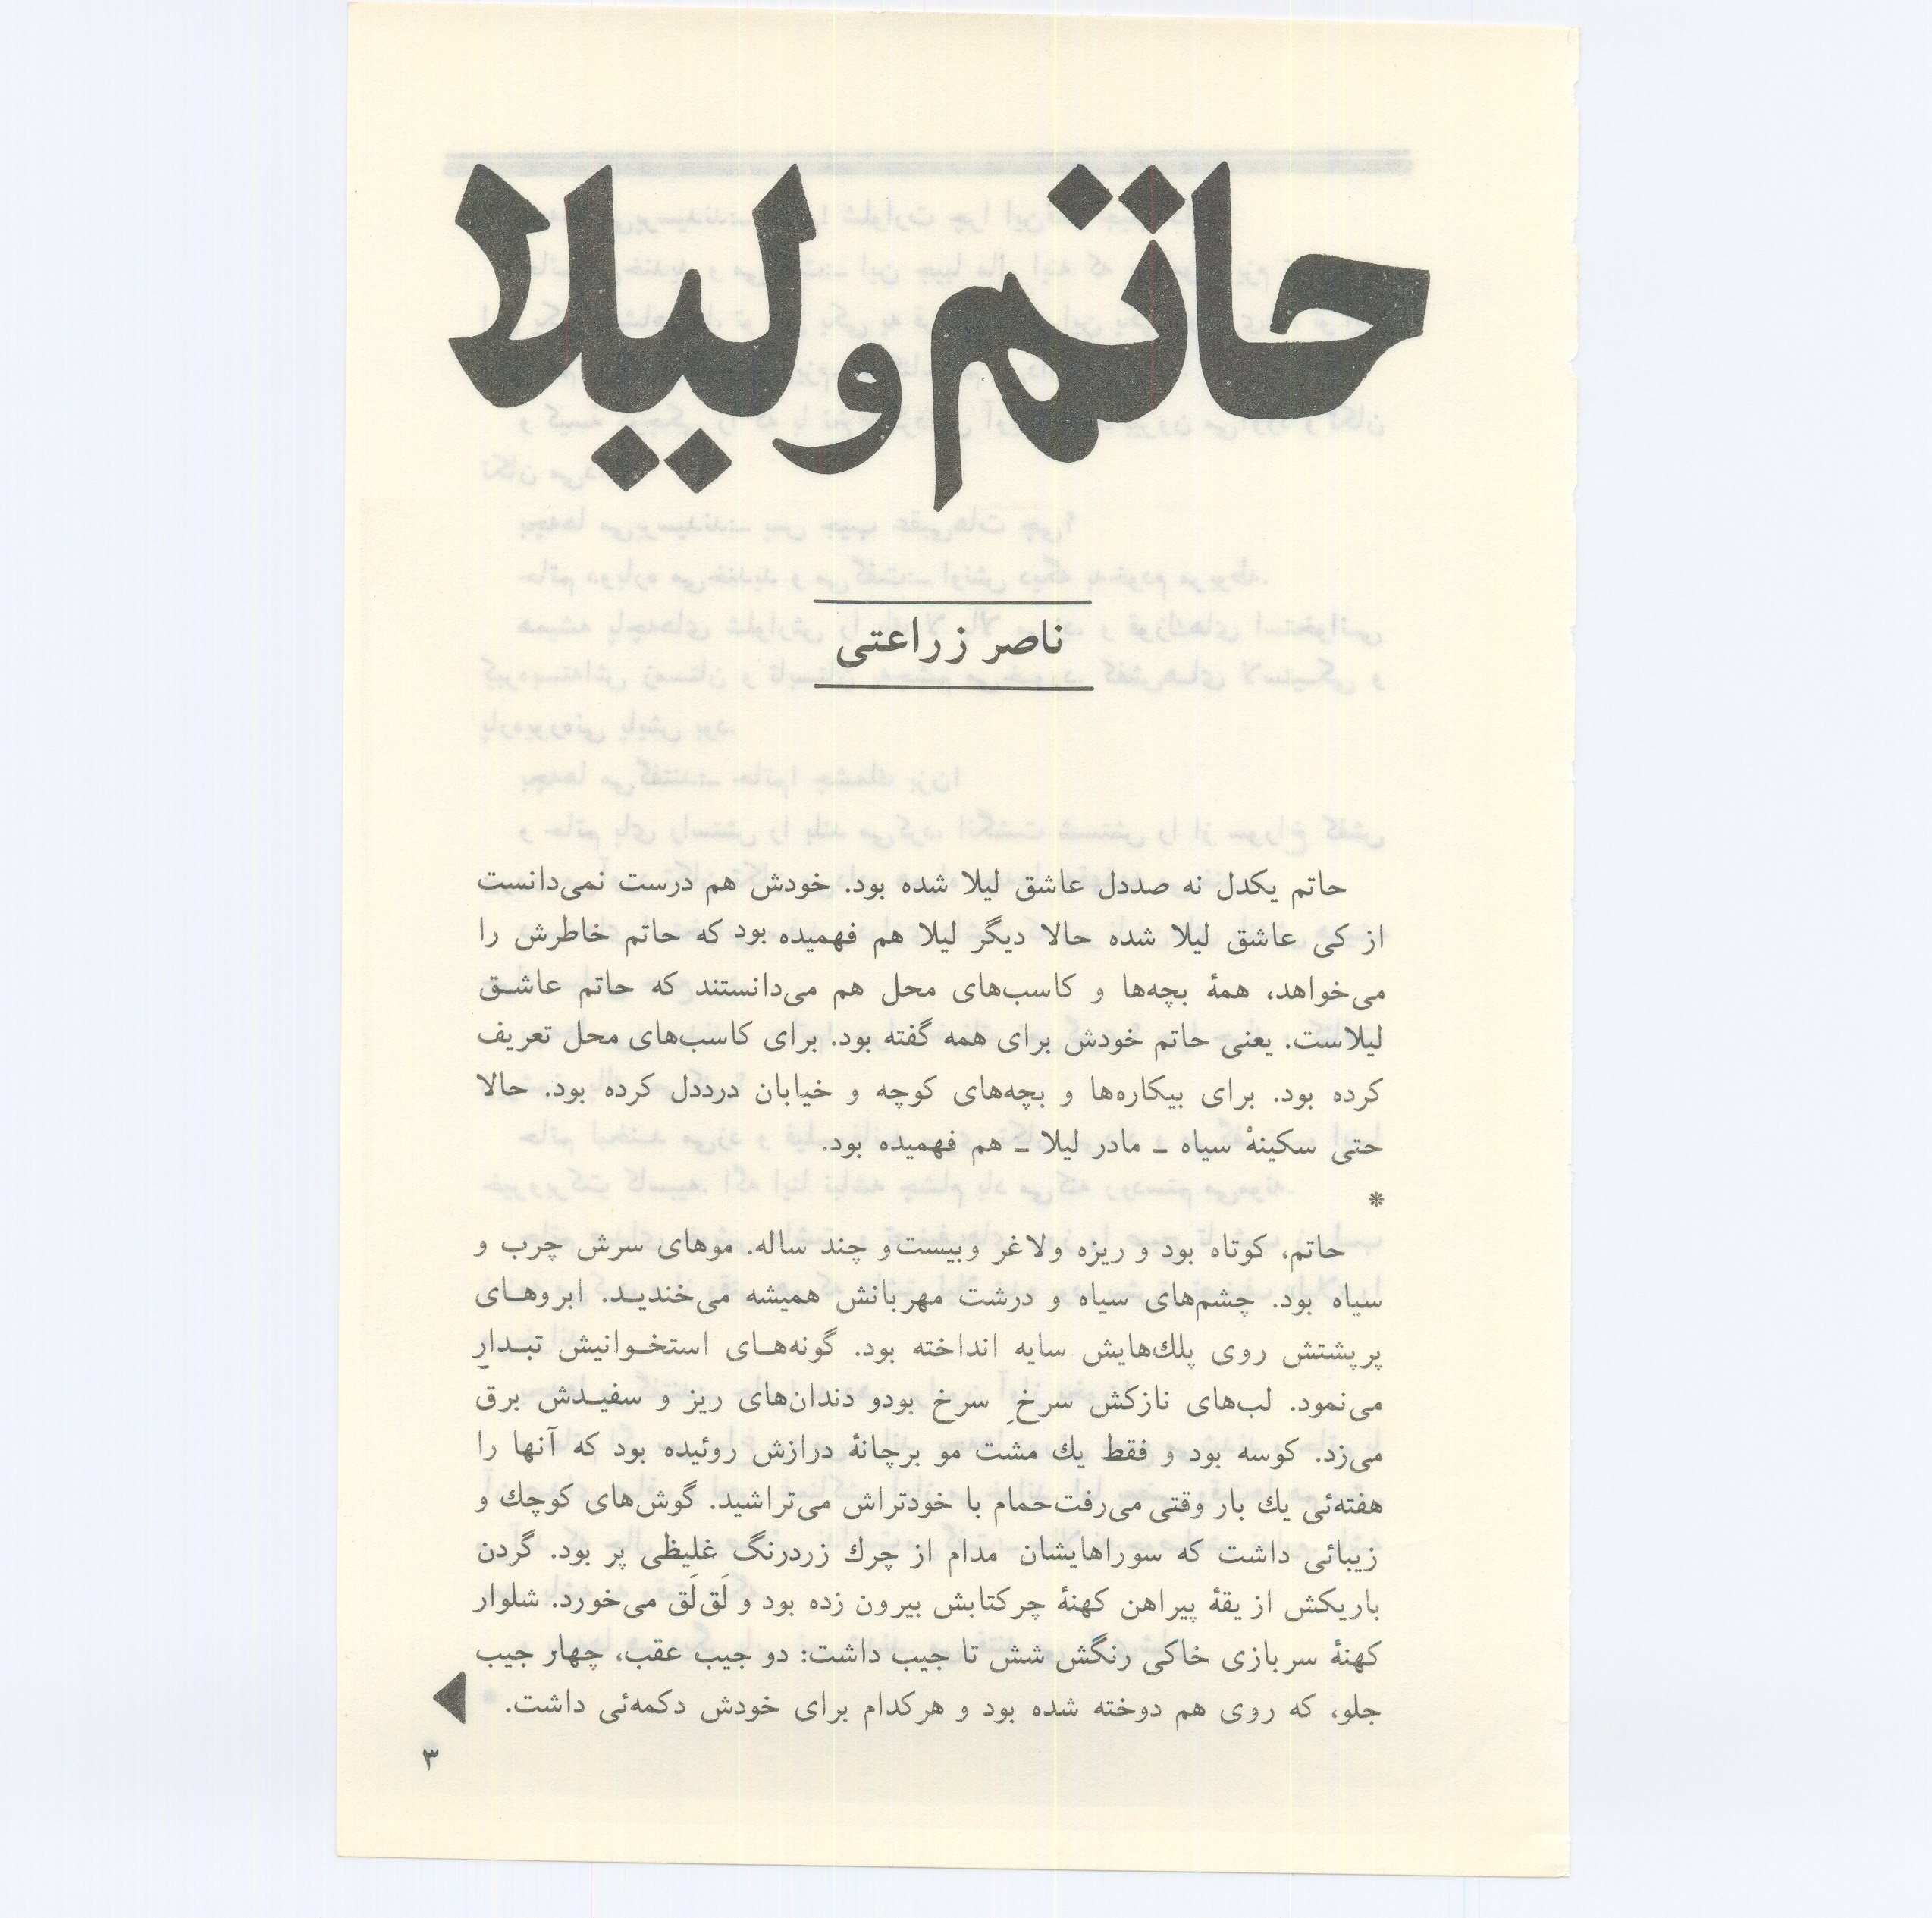 حاتم و لیلا
ناصر زراعتی
حاتم یکدل نه صددل عاشق لیلا شده بود. خودش هم درست نمی‌دانست
از کی عاشق لیلا شده حالا دیگر لیلا هم فهمیده بود که حاتم خاطرش را
می‌خواهد، همهٔ بچه‌ها و کاسب‌های محل هم می‌دانستند که حاتم عاشـق
لیلاست. یعنی حاتم خودش برای همه گفته بود. برای کاسب‌های محل تعریف
کرده بود. برای بیکاره‌ها و بچه‌های کوچه و خیابان درددل کرده بود. حالا
حتی سکینهْ سیاه ـ مادر لیلا ـ هم فهمیده بود.
*
حاتم، کوتاه بود و ریزه ولاغر وبیست‌و چند ساله. موهای سرش چرب و
سیاه بود. چشم‌های سیاه و درشت مهربانش همیشه می‌خندیـد. ابروهـای
پرپشتش روی پلك‌هایش سایه انداخته بود. گونه‌هـای استخـوانیش تبـدارِ
می‌نمود. لب‌های نازکش سرخِ سرخ بودو دندان‌های ریز و سفیـدش برق
می‌زد. کوسه بود و فقط یك مشت مو برچانهٔ درازش روئیده بود که آنها را
هفته‌ئی یك بار وقتی می‌رفت‌حمام با خودتراش می‌تراشید. گوش‌های کوچك و
زیبائی داشت که سوراهایشان مدام از چرك زردرنگ غلیظی پر بود. گردن
باریکش از یقهٔ پیراهن کهنهٔ چرکتابش بیرون زده بود و لَق‌لَق می‌خورد. شلوار
کهنهٔ سربازی خاکی رنگش شش تا جیب داشت: دو جیب عقب، چهار جیب
جلو، که روی هم دوخته شده بود و هرکدام برای خودش دکمه‌ئی داشت.
۳